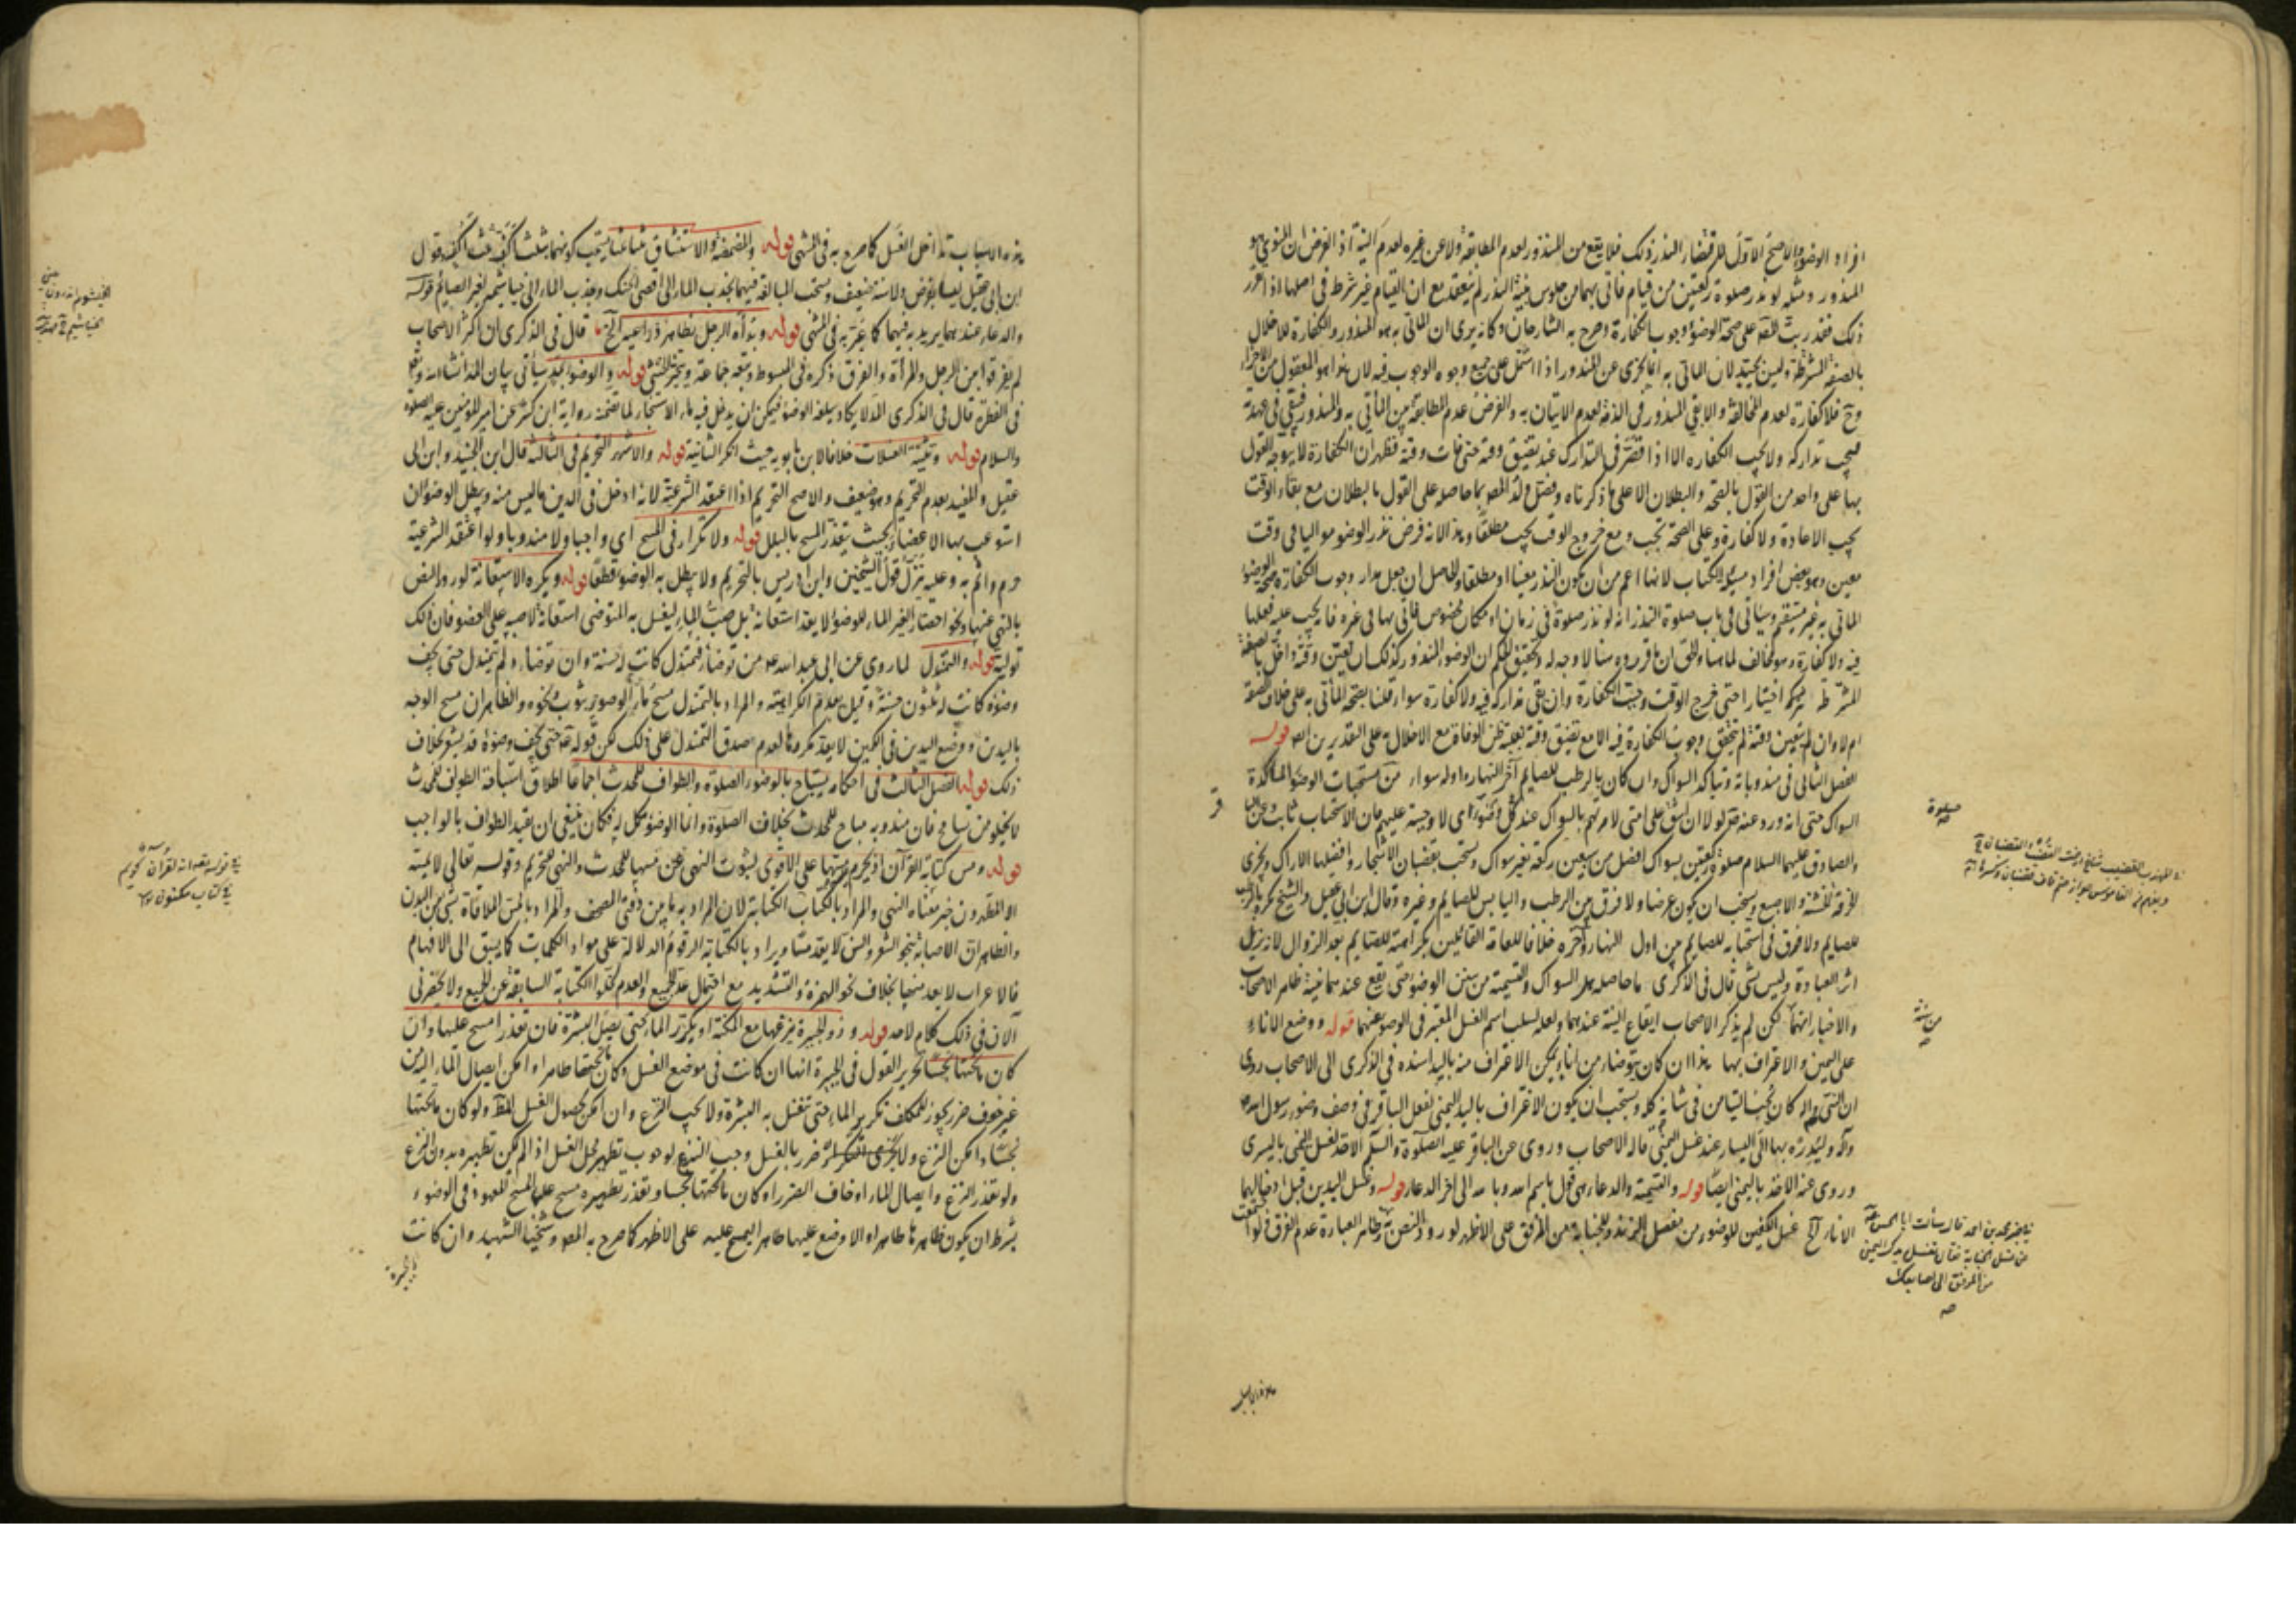 افراد الوضوء والاصح الاول للرقضاء النذر ذلك فلا يقع من المنذور لعدم المطابقة ولا عن غيره لعدم النية اذ الفرض ان المنوي هو
المنذور ومثله لو نذر صلوة ركعتين من قيام فاتى بهما من جلوس بنية النذر لم ينعقد مع ان القيام غير شرط في اصلها اذا تقرر
ذلك فقد رتب المص على صحة الوضوء وجوب الكفارة وصرح به الشارحان وكانه يرى ان المأتي به هو المنذور والكفارة للاخلال
بالصفة المشترطة وليس بجيد لان المأتي به انما يجزى عن المنذور اذا اشتمل على جميع وجوه الوجوب فيه لان هذا هو المعقول من الاجزاء
وح فلا كفارة لعدم المخالفة والا بقي المنذور في الذمة لعدم الاتيان به والفرض عدم المطابقة بين المأتي به والمنذور فيبقى في عهدته
فيجب تداركه ولا يجب الكفاره الا اذا قصر في التدارك عند تضيق وقته حتى فات وقته فظهر ان الكفارة لا يتوجه القول
بها على واحد من القول بالصحة والبطلان الا على ما ذكرناه وفصل ولد المص بما حاصله على القول بالبطلان مع بقاء الوقت
يجب الاعادة ولا كفارة وعلى الصحة تجب ومع خروج الوقت يجب مطلقا وهذا لانه فرض نذر الوضوء مواليا في وقت
معين وهو بعض افراد مسئلة الكتاب لانها اعم من ان يكون النذر معينا او مطلقا والحاصل ان جعل مدار وجوب الكفارة صحة الوضوء
المأتي به غير مستقيم وسيأتي في باب صلوة النذر انه لو نذر صلوة في زمان او مكان مخصوص فاتى بها في غيره فانه يجب عليه فعلها
فيه ولا كفارة وهو مخالف لما هنا والحق ان ما قرروه هنا لا وجه له وتحقيق الحكم ان الوضوء المنذور كذلك ان تعين وقته واخل بالصفة
المشترطة فيه اختيارا حتى خرج الوقت وجبت الكفارة وان بقي تداركه فيه ولا كفارة سواء قلنا بصحة المأتي به على خلاف الصفة
ام لا وان لم يتعين وقته لم يتحقق وجوب الكفارة فيه الا مع تضيق وقته بغلبة ظن الوفاة مع الاخلال به على التقديرين ايضا قوله
الفصل الثاني في مندوباته وتياكد السواك وان كان بالرطب للصايم آخر النهار واوله سواء من مستحبات الوضوء المأكدة
السواك حتى انه ورد عنه ص لولا ان اشق على امتي لامرتهم بالسواك عند كل وضوء اي لاوجبته عليهم فان الاستحباب ثابت وعن البا
والصادق عليهما السلام صلوة ركعتين بسواك افضل من سبعين ركعة بغير سواك وتستحب بقضبان الاشجار وافضلها الاراك ويجزى
الخرقة الخشنة والاصبع ويستحب ان يكون عرضا ولا فرق بين الرطب واليابس للصايم وغيره وقال ابن ابي عقيل والشيخ يكره بالرطب
للصايم ولا فرق في استحبابه للصايم بين اول النهار وآخره خلافا للعامة القائلين بكراهته للصايم بعد الزوال لانه يزيل
اثر العبادة وليس بشئ قال في الذكرى ما حاصله هل السواك والتسمية من سنن الوضوء حتى تقع عندهما نيته ظاهر الاصحاب
والاخبار انهما لكن لم يذكر الاصحاب ايقاع النية عندهما ولعله لسلب اسم الغسل المعتبر في الوضوء عنهما قوله ووضع الاناء
على اليمين والاغتراف بها هذا ان كان يتوضأ من اناء يمكن الاغتراف منه باليد اسنده في الذكرى الى الاصحاب وروى
ان النبي ص كان يحب التيامن في شأنه كله ويستحب ان يكون الاغتراف باليد اليمنى لفعل الباقر ع في وصف وضوء رسول الله ص
وآله وليديره بها الى اليسار عند غسل اليمنى قاله الاصحاب وروى عن الباقر عليه الصلوة والسلم الاخذ لغسل اليمنى باليسرى
وروى عنه الاخذ باليمنى ايضا قوله والتسمية والدعاء هي قول باسم الله وبالله الى آخر الدعاء قوله وغسل اليدين قبل ادخالهما
الاناء الخ غسل الكفين للوضوء من مفصل الزند وللجنابة من المرفق على الاظهر لورود النص به وظاهر العبارة عدم الفرق فلو اجتمعت
صلوة
من سننه
ناجز محمد بن احمد قال سألت ابا الحسن ع
عن غسل الجنابة فقال تغسل يدك اليمنى
من المرفق الى اصابعك
هذه الاسباب تداخل الغسل كما صرح به في المنتهى قوله والمضمضة والاستنشاق ثلثا ثلثا يستحب كونهما بثلث اكف ثلث اكف وقول
ابن ابي عقيل ليسا بفرض ولا سنة ضعيف ويستحب المبالغة فيهما بجذب الماء الى اقصى الحنك وجذب الماء الى خياشيمه لغير الصائم قوله
والدعاء عندهما يريد به فيهما كما عبر به في المنتهى قوله وبدأة الرجل بظاهر ذراعيه الخ قال في الذكرى ان اكثر الاصحاب
لم يفرقوا بين الرجل والمرأة والفرق ذكره في المبسوط وتبعه جماعة ويتخير الخنثى قوله والوضوء بمد سيأتي بيان المد انشاء الله تعالى
في الفطرة قال في الذكرى المد لا يكاد يبلغه الوضوء فيمكن ان يدخل فيه ماء الاستنجاء لما تضمنه رواية ابن كثير عن امير المؤمنين عليه الصلوة
والسلام قوله وتثنية الغسلات خلافا لابن بابويه حيث انكر الثانية قوله والاشهر التحريم في الثالثة قال ابن الجنيد وابن ابي
عقيل والمفيد بعدم التحريم وهو ضعيف والاصح التحريم اذا اعتقد الشرعية لانه ادخل في الدين ما ليس منه ويبطل الوضوء ان
استوعب بها الاعضاء بحيث يتعذر المسح بالبلل قوله ولا تكرار في المسح اي واجبا ولا مندوبا ولو اعتقد الشرعية
حرم واثم به وعليه ينزل قول الشيخين وابن ادريس بالتحريم ولا يبطل به الوضوء قطعا قوله ويكره الاستعانة لورود النص
بالنهي عنها ونحو احضار الغير الماء للوضوء لا يعد استعانة بل صب الماء ليغسل به المتوضى استعانة لا صبه على العضو فان ذلك
تولية قوله والتمندل لما روي عن ابي عبد الله ع من توضأ فتمندل كانت له حسنة وان توضأ ولم يتمندل حتى يجف
وضوءه كانت له ثلثون حسنة وقيل بعدم الكراهية والمراد بالتمندل مسح ماء الوضوء بثوب ونحوه والظاهر ان مسح الوجه
باليدين ووضع اليدين في الكمين لا يعد مكروها لعدم صدق التمندل على ذلك لكن قوله ع حتى يجف وضوءه قد يشعر بخلاف
ذلك قوله الفصل الثالث في احكامه يستباح بالوضوء الصلوة والطواف للمحدث اجماعا اطلاق استباحة الطواف للمحدث
لا يخلو من تسامح فان مندوبه مباح للمحدث بخلاف الصلوة وانما الوضوء مكمل له فكان ينبغي ان يقيد الطواف بالواجب
قوله ومس كتابة القرآن اذ يحرم مسها على الاقوى لثبوت النهي عن مسها للمحدث والنهي للتحريم وقوله تعالى لا يمسه
الا المطهرون خبر معناه النهي والمراد بالكتاب الكتابة لان المراد به ما بين دفتي المصحف والمراد بالمس الملاقاة بشئ من البدن
والظاهر ان الاصابة بنحو الشعر والسن لا يعد مسا ويراد بالكتابة الرقوم الدالة على مواد الكلمات كما يسبق الى الافهام
فالاعراب لا يعد منها بخلاف نحو الهمزة والتشديد مع احتمال عد الجميع والعدم لخلو الكتابة السابقة عن الجميع ولا يحضرني
الآن في ذلك كلام لاحد قوله وذو الجبيرة ينزعها مع المكنة او يكرر الماء حتى يصل البشرة فان تعذرا مسح عليها وان
كان ما تحتها نجسا تحرير القول في الجبيرة انها ان كانت في موضع الغسل وكان ما تحتها طاهرا وامكن ايصال الماء اليه من
غير خوف ضرر يجوز للمكلف تكرير الماء حتى تغسل به البشرة ولا يجب النزع وان امكن لحصول الغسل المط ولو كان ما تحتها
نجسا وامكن النزع ولا يجزى التكرار ضرر بالغسل وجب النزع لوجوب تطهير محل الغسل اذا لم يمكن تطهيره بدون النزع
ولو تعذر النزع وايصال الماء او خاف الضرر او كان ما تحتها نجسا وتعذر تطهيره مسح عليها المسح المعهود في الوضوء
بشرط ان يكون ظاهرها طاهرا والا وضع عليها طاهر ايمسح عليه على الاظهر كما صرح به المص وشيخنا الشهيد وان كانت
في قوله تعالى انه لقرآن كريم
في كتاب مكنون
الجبيرة